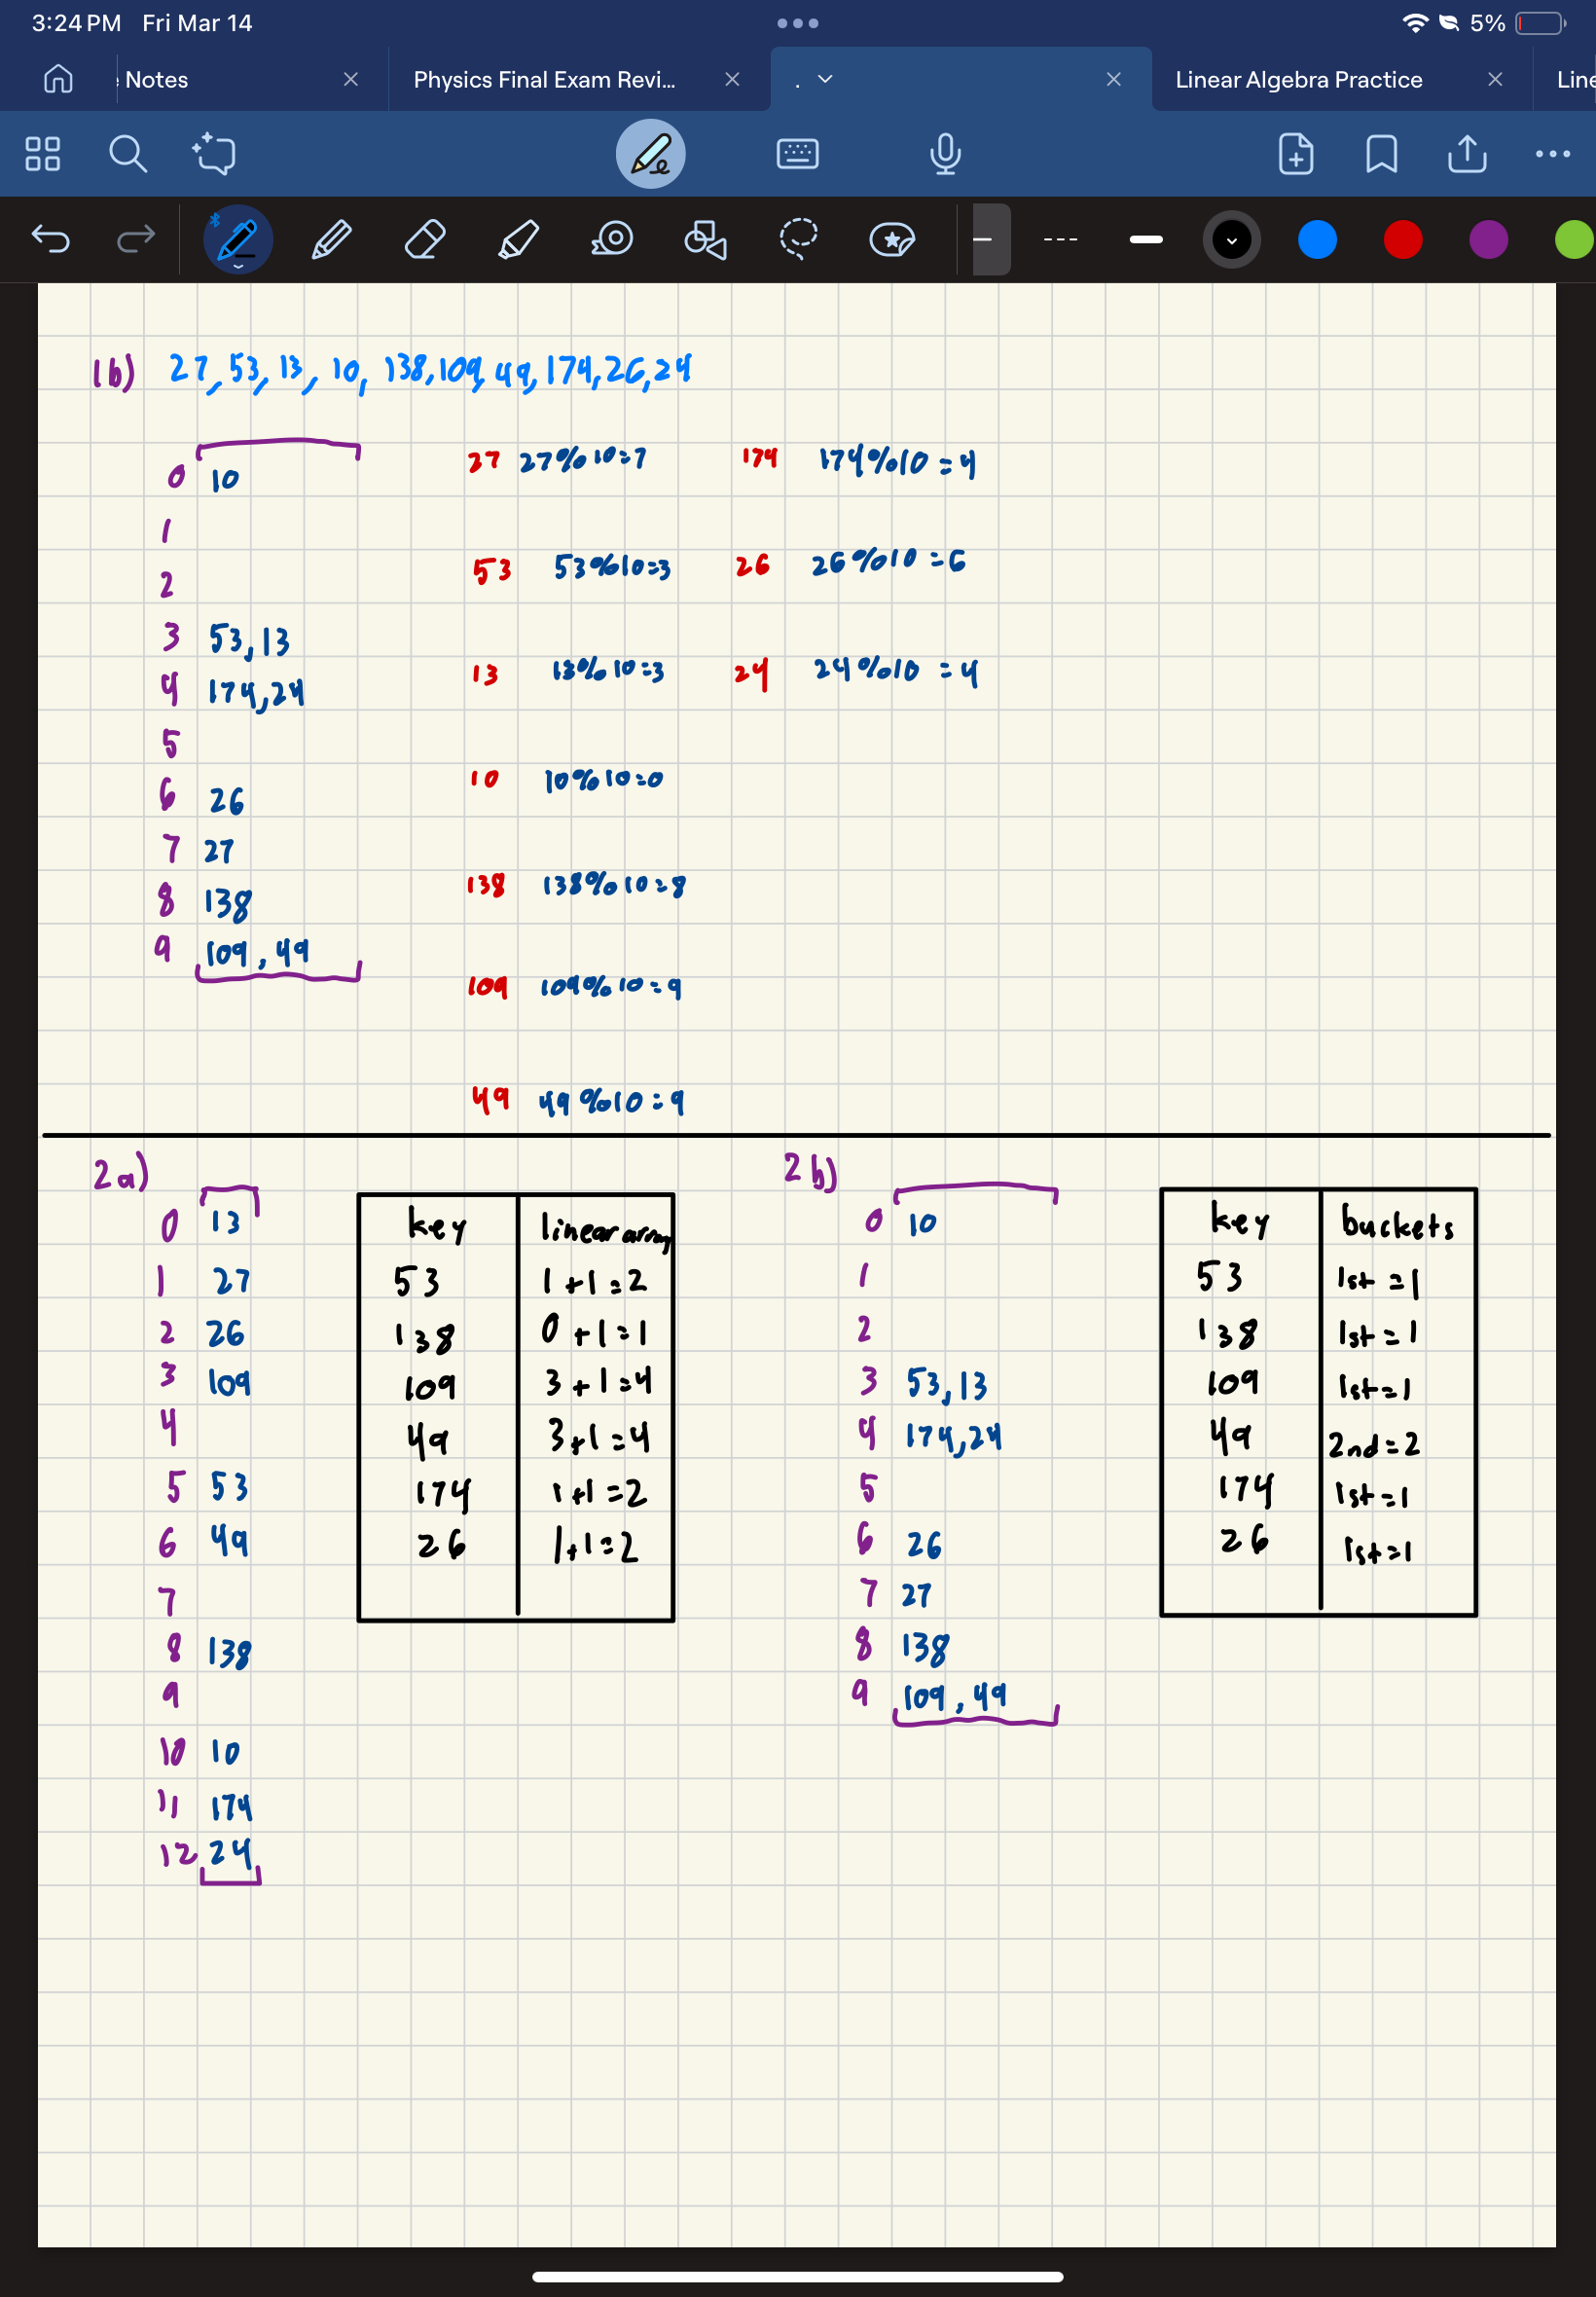 3:24 PM Fri Mar 14 5%
Notes Physics Final Exam Revi... . Linear Algebra Practice Line
1b) 27, 53, 13, 10, 138, 109, 49, 174, 26, 24
0 10 27 27%10=7 174 174%10=4
1
2 53 53%10=3 26 26%10=6
3 53,13 13 13%10=3 24 24%10=4
4 174,24
5
6 26 10 10%10=0
7 27
8 138 138 138%10=8
9 109, 49 109 109%10=9
49 49%10=9
2a)
0 13
1 27
2 26
3 109
4
5 53
6 49
7
8 138
9
10 10
11 174
12 24
key linear array
53 1+1=2
138 0+1=1
109 3+1=4
49 3+1=4
174 1+1=2
26 1+1=2
2b)
0 10
1
2
3 53,13
4 174,24
5
6 26
7 27
8 138
9 109, 49
key buckets
53 1st=1
138 1st=1
109 1st=1
49 2nd=2
174 1st=1
26 1st=1